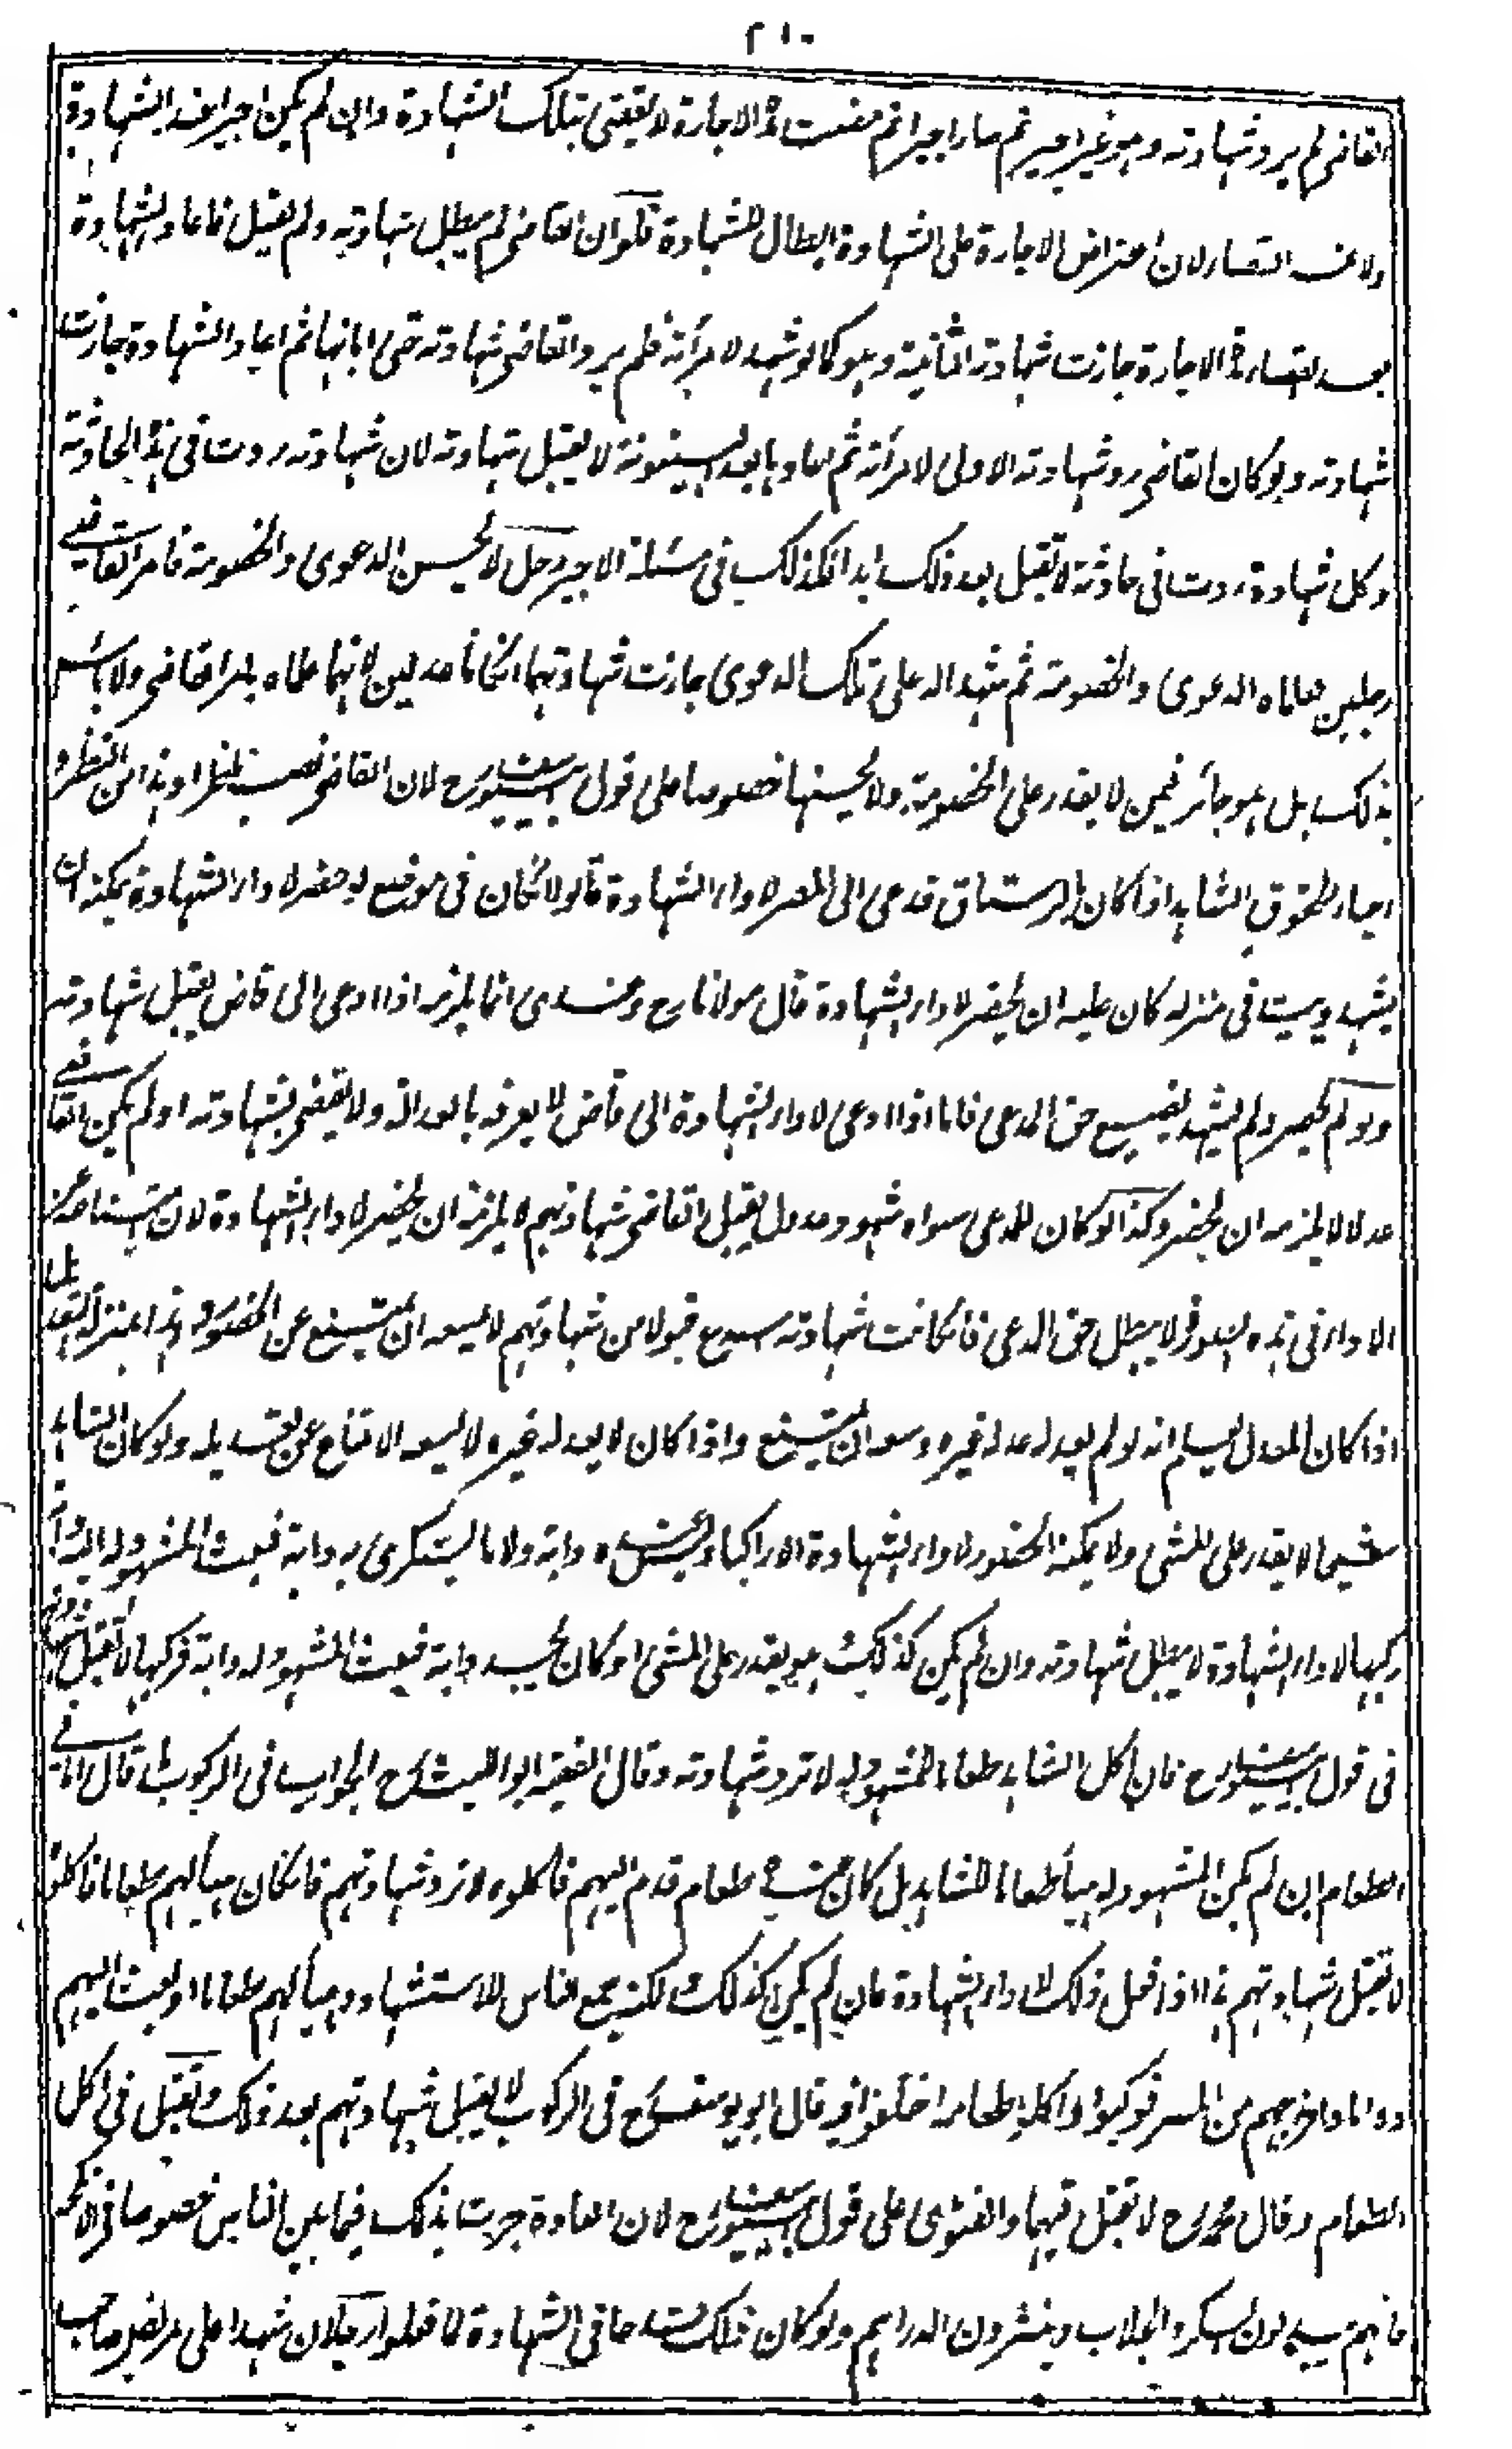 ٢١٠
القاضى لم يرد شهادته وهو غير اجير ثم صار اجيرا ثم مضت مدة الاجارة لا يقضى بتلك الشهادة وان لم يكن اجيرا عند الشهادة
ولا عند القضاء لان اعتراض الاجارة على الشهادة ابطال للشهادة فلو ان القاضى لم يبطل شهادته ولم يقبل فاعاد الشهادة
بعد انقضاء مدة الاجارة جازت شهادته الثانية وهو كما لو شهد لامرأته فلم يرد القاضى شهادته حتى ابانها ثم اعاد الشهادة جازت
شهادته ولو كان القاضى رد شهادته الاولى لامرأته ثم اعادها بعد البينونة لا يقبل شهادته لان شهادته ردت فى هذه الحادثة
وكل شهادة ردت فى حادثة لا تقبل بعد ذلك ابدا فكذلك فى مسئلة الاجير رجل لا يحسن الدعوى والخصومة فامر القاضى
رجلين فعلماه الدعوى والخصومة ثم شهدا له على تلك الدعوى جازت شهادتهما انكانا عدلين لانهما علماه بامر القاضى ولا باس
بذلك بل هو جائز فيمن لا يقدر على الخصومة ولا يحسنها خصوصا على قول ابى يوسف رح لان القاضى نصب ناظرا وهذا من النظر و
احياء الحقوق الشاهد اذا كان بالرستاق فدعى الى المصر لاداء الشهادة قالوا لو كان فى موضع لو حضر لاداء الشهادة يمكنه ان
يشهد ويبيت فى منزله كان عليه ان يحضر لاداء الشهادة قال مولانا رح وعندى انما يلزمه اذا ادعى الى قاض يقبل شهادته
ولو لم يحضر ولم يشهد يضيع حق المدعى فاما اذا ادعى لاداء الشهادة الى قاض لا يعرفه بالعدالة ولا يقضى بشهادته او لم يكن القاضى
عدلا لا يلزمه ان يحضر وكذا لو كان للمدعى سواه شهود عدول يقبل القاضى شهادتهم لا يلزمه ان يحضر لاداء الشهادة لان امتناعه عن
الاداء فى هذه الصور لا يبطل حق المدعى فانكانت شهادته اسرع قبولا من شهادتهم لا يسعه ان يمتنع عن الحضور وهذا بمنزلة التعديل
اذا كان المعدل يعلم انه لو لم يعدله عدله غيره وسعه ان يمتنع واذا كان لا يعدله غيره لا يسعه الامتناع عن تعديله ولو كان الشاهد
شيخا لا يقدر على المشى ولا يمكنه الحضور لاداء الشهادة الا راكبا وليس عنده دابة ولا ما يستكرى به دابة فبعث المشهود له اليه دابة
ركبها لاداء الشهادة لا يبطل شهادته وان لم يكن كذلك وهو يقدر على المشى او كان يجد دابة فبعث المشهود له دابة فركبها لا تقبل شهادته
فى قول ابى يوسف رح فان اكل الشاهد طعاما للمشهود له لا ترد شهادته وقال الفقيه ابو الليث رح الجواب فى الركوب ما قال اما فى
الطعام ان لم يكن المشهود له هيأ طعاما للشاهد بل كان عنده طعام قدم اليهم فاكلوه لا ترد شهادتهم فانكان هيأ لهم طعاما فاكلوه
لا تقبل شهادتهم هذا اذا فعل ذلك لاداء الشهادة فان لم يكن كذلك لكنه جمع الناس للاستشهاد وهيأ لهم طعاما او بعث اليهم
دوابا واخرجهم من المصر فركبوا واكلوا طعامه اختلفوا فيه قال ابو يوسف رح فى الركوب لا يقبل شهادتهم بعد ذلك وتقبل فى اكل
الطعام وقال محمد رح لا تقبل فيهما والفتوى على قول ابى يوسف رح لان العادة جرت بذلك فيما بين الناس خصوصا فى الانكحة
فانهم يبذلون السكر والجلاب وينثرون الدراهم ولو كان ذلك قدحا فى الشهادة لما فعلوا رجلان شهدا على مريض صاحب